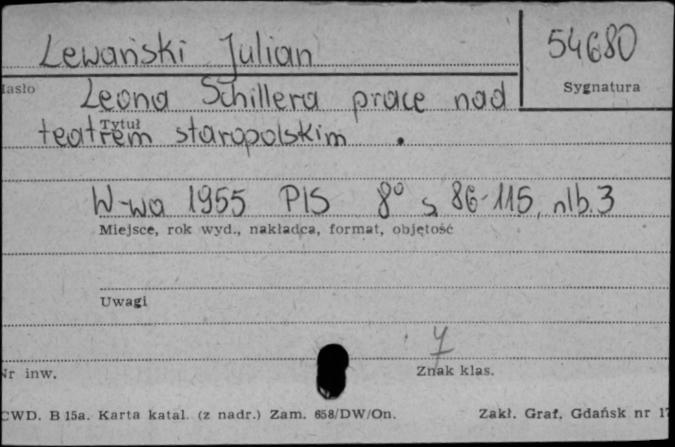 Lewański Julian
54680
Hasło
Sygnatura
Leona Schillera prace nad
Tytuł
teatrem staropolskim.
W-wa 1955 PIS 8° s 86-115, nlb. 3
Miejsce, rok wyd., nakładca, format, objętość
Uwagi
7
Nr inw.
Znak klas.
CWD. B 15a. Karta katal. (z nadr.) Zam. 658/DW/On.
Zakł. Graf. Gdańsk nr 17